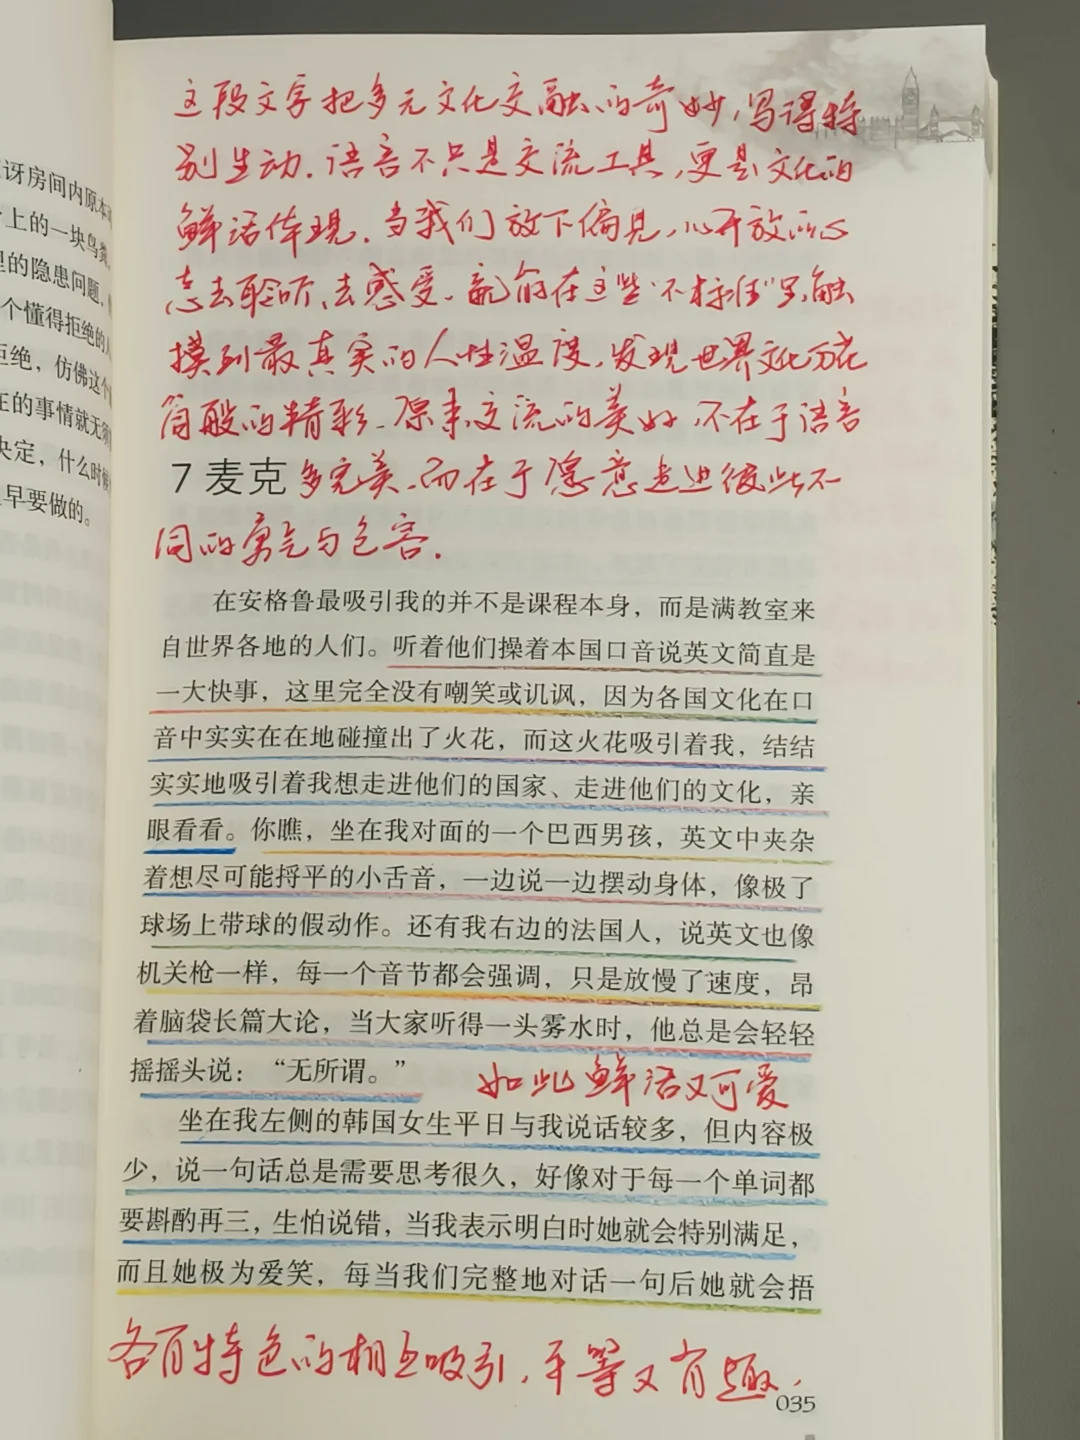 讶房间内原本
上的一块鸟粪
里的隐患问题，
个懂得拒绝的人
拒绝，仿佛这个
在的事情就无须
决定，什么时候
早要做的。
这段文字把多元文化交融的奇妙，写得特
别生动。语言不只是交流工具，更是文化的
鲜活体现。当我们放下偏见，以开放的心
态去聆听、去感受，就能在这些“不标准”里，触
摸到最真实的人性温度，发现世界文化万花
筒般的精彩。原来交流的美好，不在于语言
7 麦克 多完美，而在于愿意走进彼此不
同的勇气与包容。
在安格鲁最吸引我的并不是课程本身，而是满教室来
自世界各地的人们。听着他们操着本国口音说英文简直是
一大快事，这里完全没有嘲笑或讥讽，因为各国文化在口
音中实实在在地碰撞出了火花，而这火花吸引着我，结结
实实地吸引着我想走进他们的国家、走进他们的文化，亲
眼看看。你瞧，坐在我对面的一个巴西男孩，英文中夹杂
着想尽可能捋平的小舌音，一边说一边摆动身体，像极了
球场上带球的假动作。还有我右边的法国人，说英文也像
机关枪一样，每一个音节都会强调，只是放慢了速度，昂
着脑袋长篇大论，当大家听得一头雾水时，他总是会轻轻
摇摇头说：“无所谓。”
如此鲜活又可爱
坐在我左侧的韩国女生平日与我说话较多，但内容极
少，说一句话总是需要思考很久，好像对于每一个单词都
要斟酌再三，生怕说错，当我表示明白时她就会特别满足，
而且她极为爱笑，每当我们完整地对话一句后她就会捂
各有特色的相互吸引，平等又有趣，
035